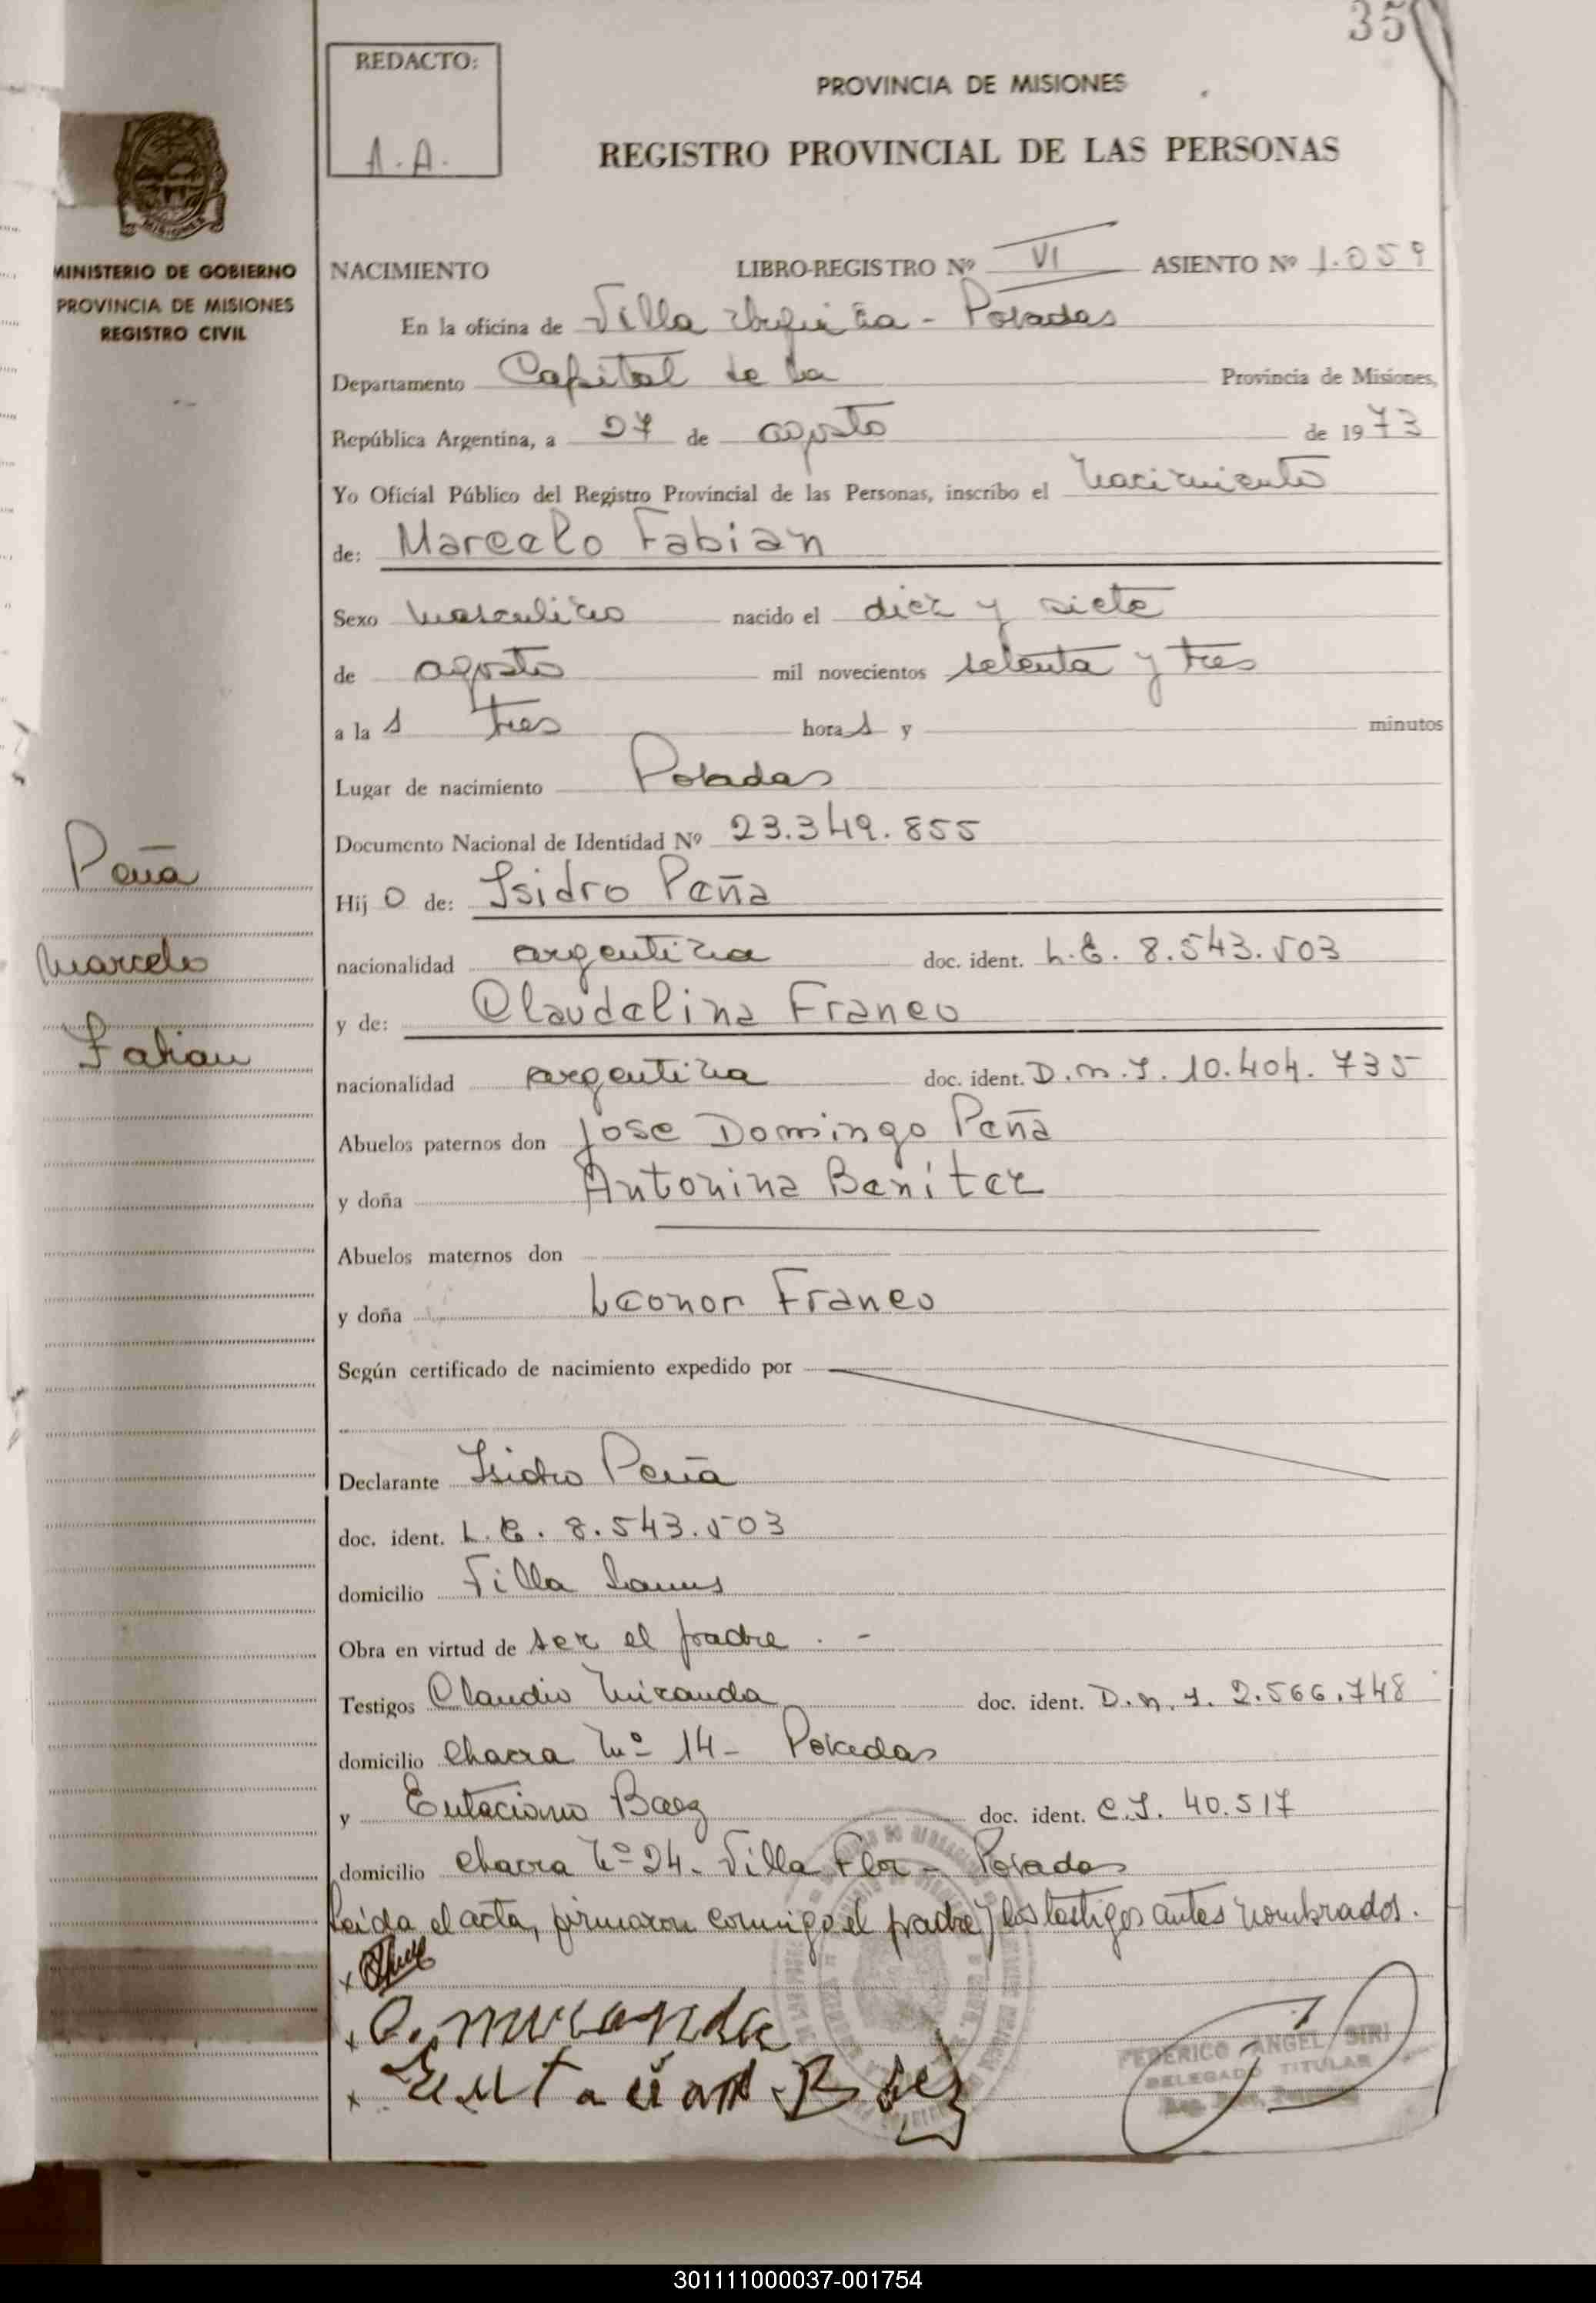 35
REDACTO:
A.A.
PROVINCIA DE MISIONES
REGISTRO PROVINCIAL DE LAS PERSONAS
MISIONES
MINISTERIO DE GOBIERNO
PROVINCIA DE MISIONES
REGISTRO CIVIL
NACIMIENTO LIBRO-REGISTRO Nº VI ASIENTO Nº 1.059
En la oficina de Villa Urquiza - Posadas
Departamento Capital de la Provincia de Misiones,
República Argentina, a 27 de agosto de 1973
Yo Oficial Público del Registro Provincial de las Personas, inscribo el nacimiento
de: Marcelo Fabian
Sexo masculino nacido el diez y siete
de agosto mil novecientos setenta y tres
a la s tres hora s y minutos
Lugar de nacimiento Posadas
Documento Nacional de Identidad Nº 23.349.855
Peña
Marcelo
Fabian
Hij o de: Isidro Peña
nacionalidad argentina doc. ident. L.E. 8.543.503
y de: Claudelina Franco
nacionalidad argentina doc. ident. D.N.I. 10.404.735
Abuelos paternos don Jose Domingo Peña
y doña Antonina Benítez
Abuelos maternos don
y doña Leonor Franco
Según certificado de nacimiento expedido por
Declarante Isidro Peña
doc. ident. L.E. 8.543.503
domicilio Villa Lanus
Obra en virtud de ser el padre . -
Testigos Claudio Miranda doc. ident. D.N.I. 2.566.748
domicilio chacra Nº 14 - Posadas
y Eutaciano Baez doc. ident. C.I. 40.517
domicilio chacra Nº 24 - Villa Flor - Posadas
Leída el acta, firmaron conmigo el padre y los testigos antes nombrados.
x
x C. miranda
x Eutaciano Baez
FEDERICO ANGEL SIRI
DELEGADO TITULAR
301111000037-001754